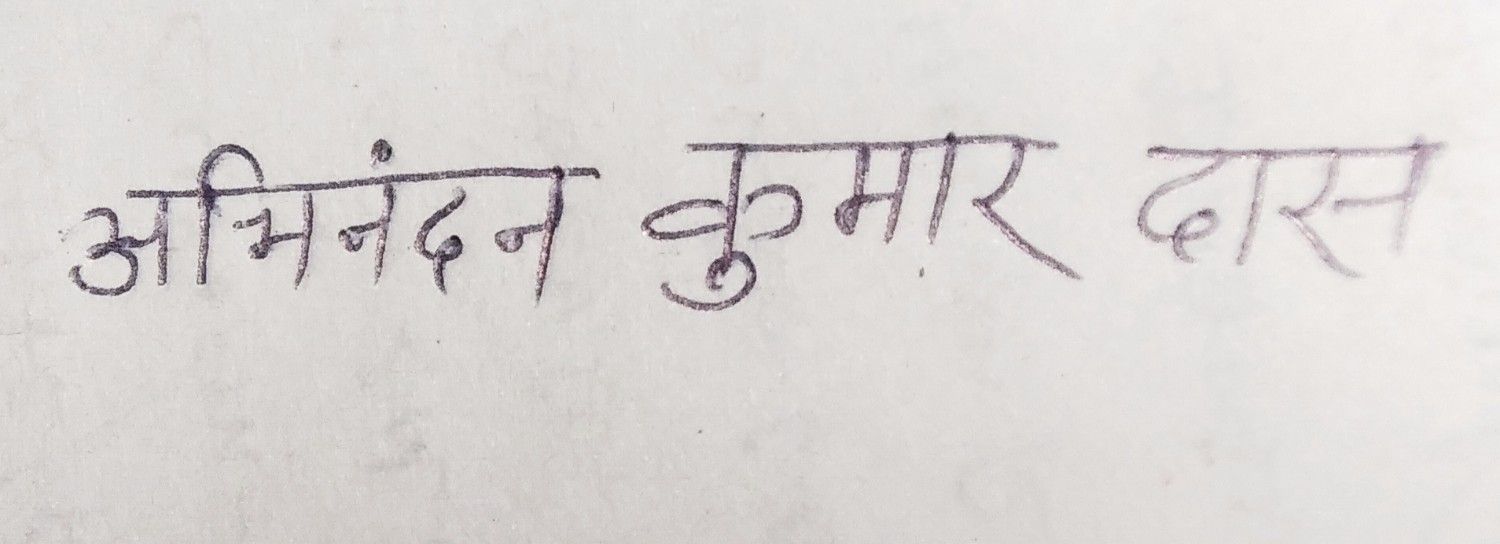 अभिनंदन कुमार दास